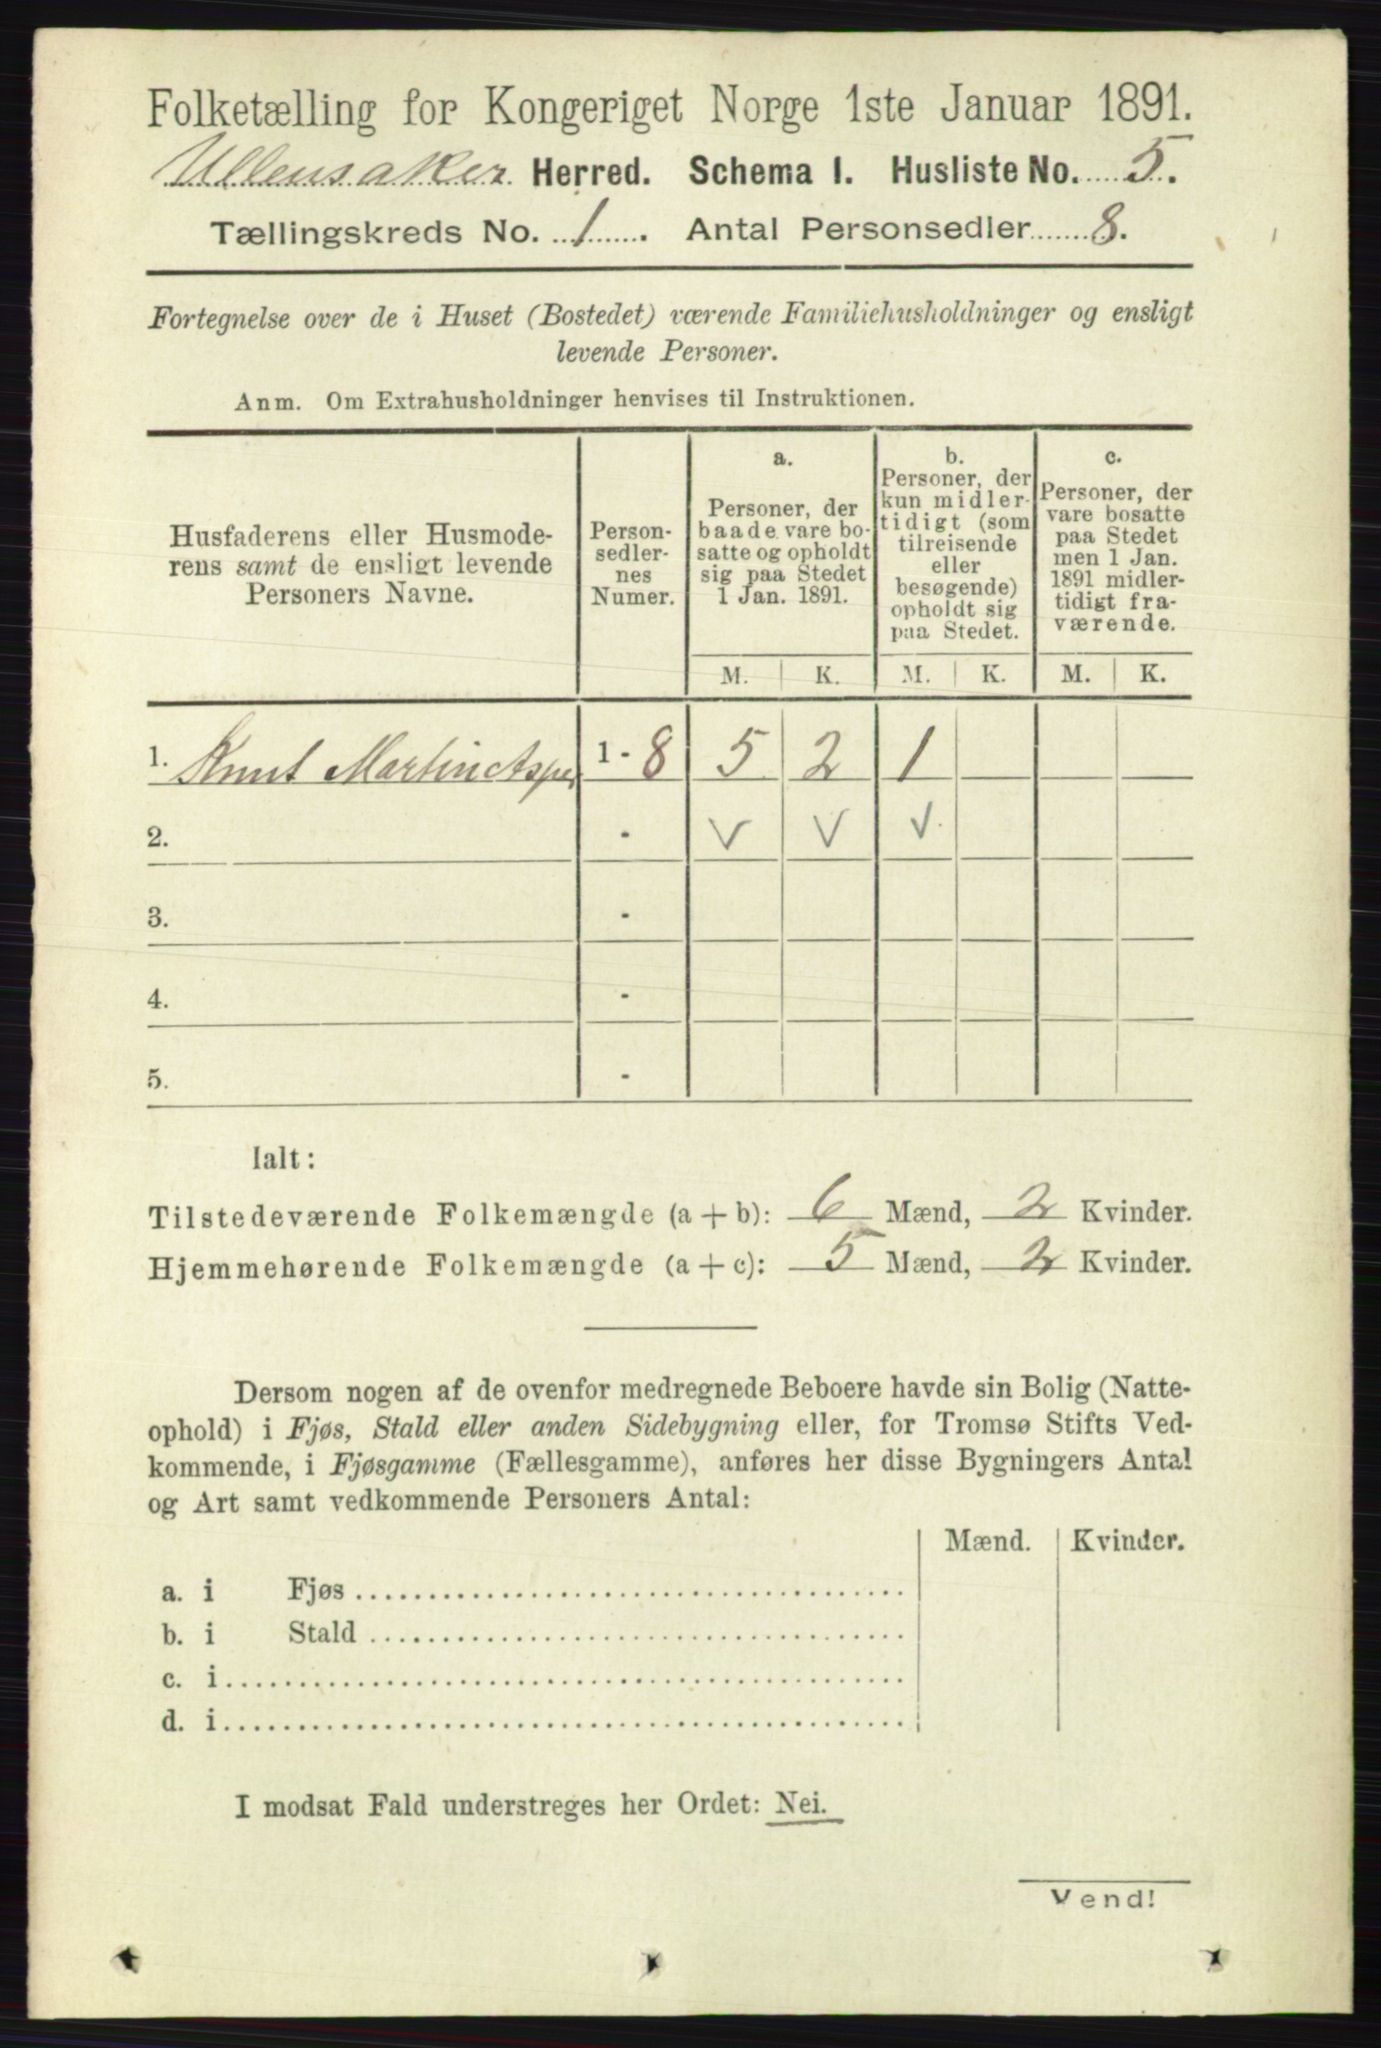 Folketælling for Kongeriget Norge 1ste Januar 1891.
Ullensaker Herred. Schema I. Husliste No. 5.
Tællingskreds No. 1. Antal Personsedler 8.
Fortegnelse over de i Huset (Bostedet) værende Familiehusholdninger og ensligt
levende Personer.
Anm. Om Extrahusholdninger henvises til Instruktionen.
Husfaderens eller Husmode-
rens samt de ensligt levende
Personers Navne.
Person-
sedler-
nes
Numer.
a.
Personer, der
baade vare bo-
satte og opholdt
sig paa Stedet
1 Jan. 1891.
b.
Personer, der
kun midler-
tidigt (som
tilreisende
eller
besøgende)
opholdt sig
paa Stedet.
c.
Personer, der
vare bosatte
paa Stedet
men 1 Jan.
1891 midler-
tidigt fra-
værende.
M. K. M. K. M. K.
1. Knut Martin 1 - 8 5 2 1
2. - V V V
3. -
4. -
5. -
Ialt:
Tilstedeværende Folkemængde (a + b): 6 Mænd, 2 Kvinder.
Hjemmehørende Folkemængde (a + c): 5 Mænd, 2 Kvinder.
Dersom nogen af de ovenfor medregnede Beboere havde sin Bolig (Natte-
ophold) i Fjøs, Stald eller anden Sidebygning eller, for Tromsø Stifts Ved-
kommende, i Fjøsgamme (Fællesgamme), anføres her disse Bygningers Antal
og Art samt vedkommende Personers Antal:
Mænd. Kvinder.
a. i Fjøs
b. i Stald
c. i
d. i
I modsat Fald understreges her Ordet: Nei.
Vend!